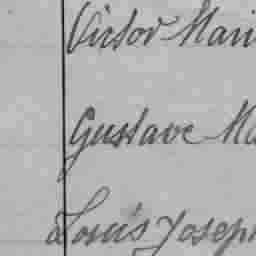 Victor Mari
Gustave Ma
Louis Joseph